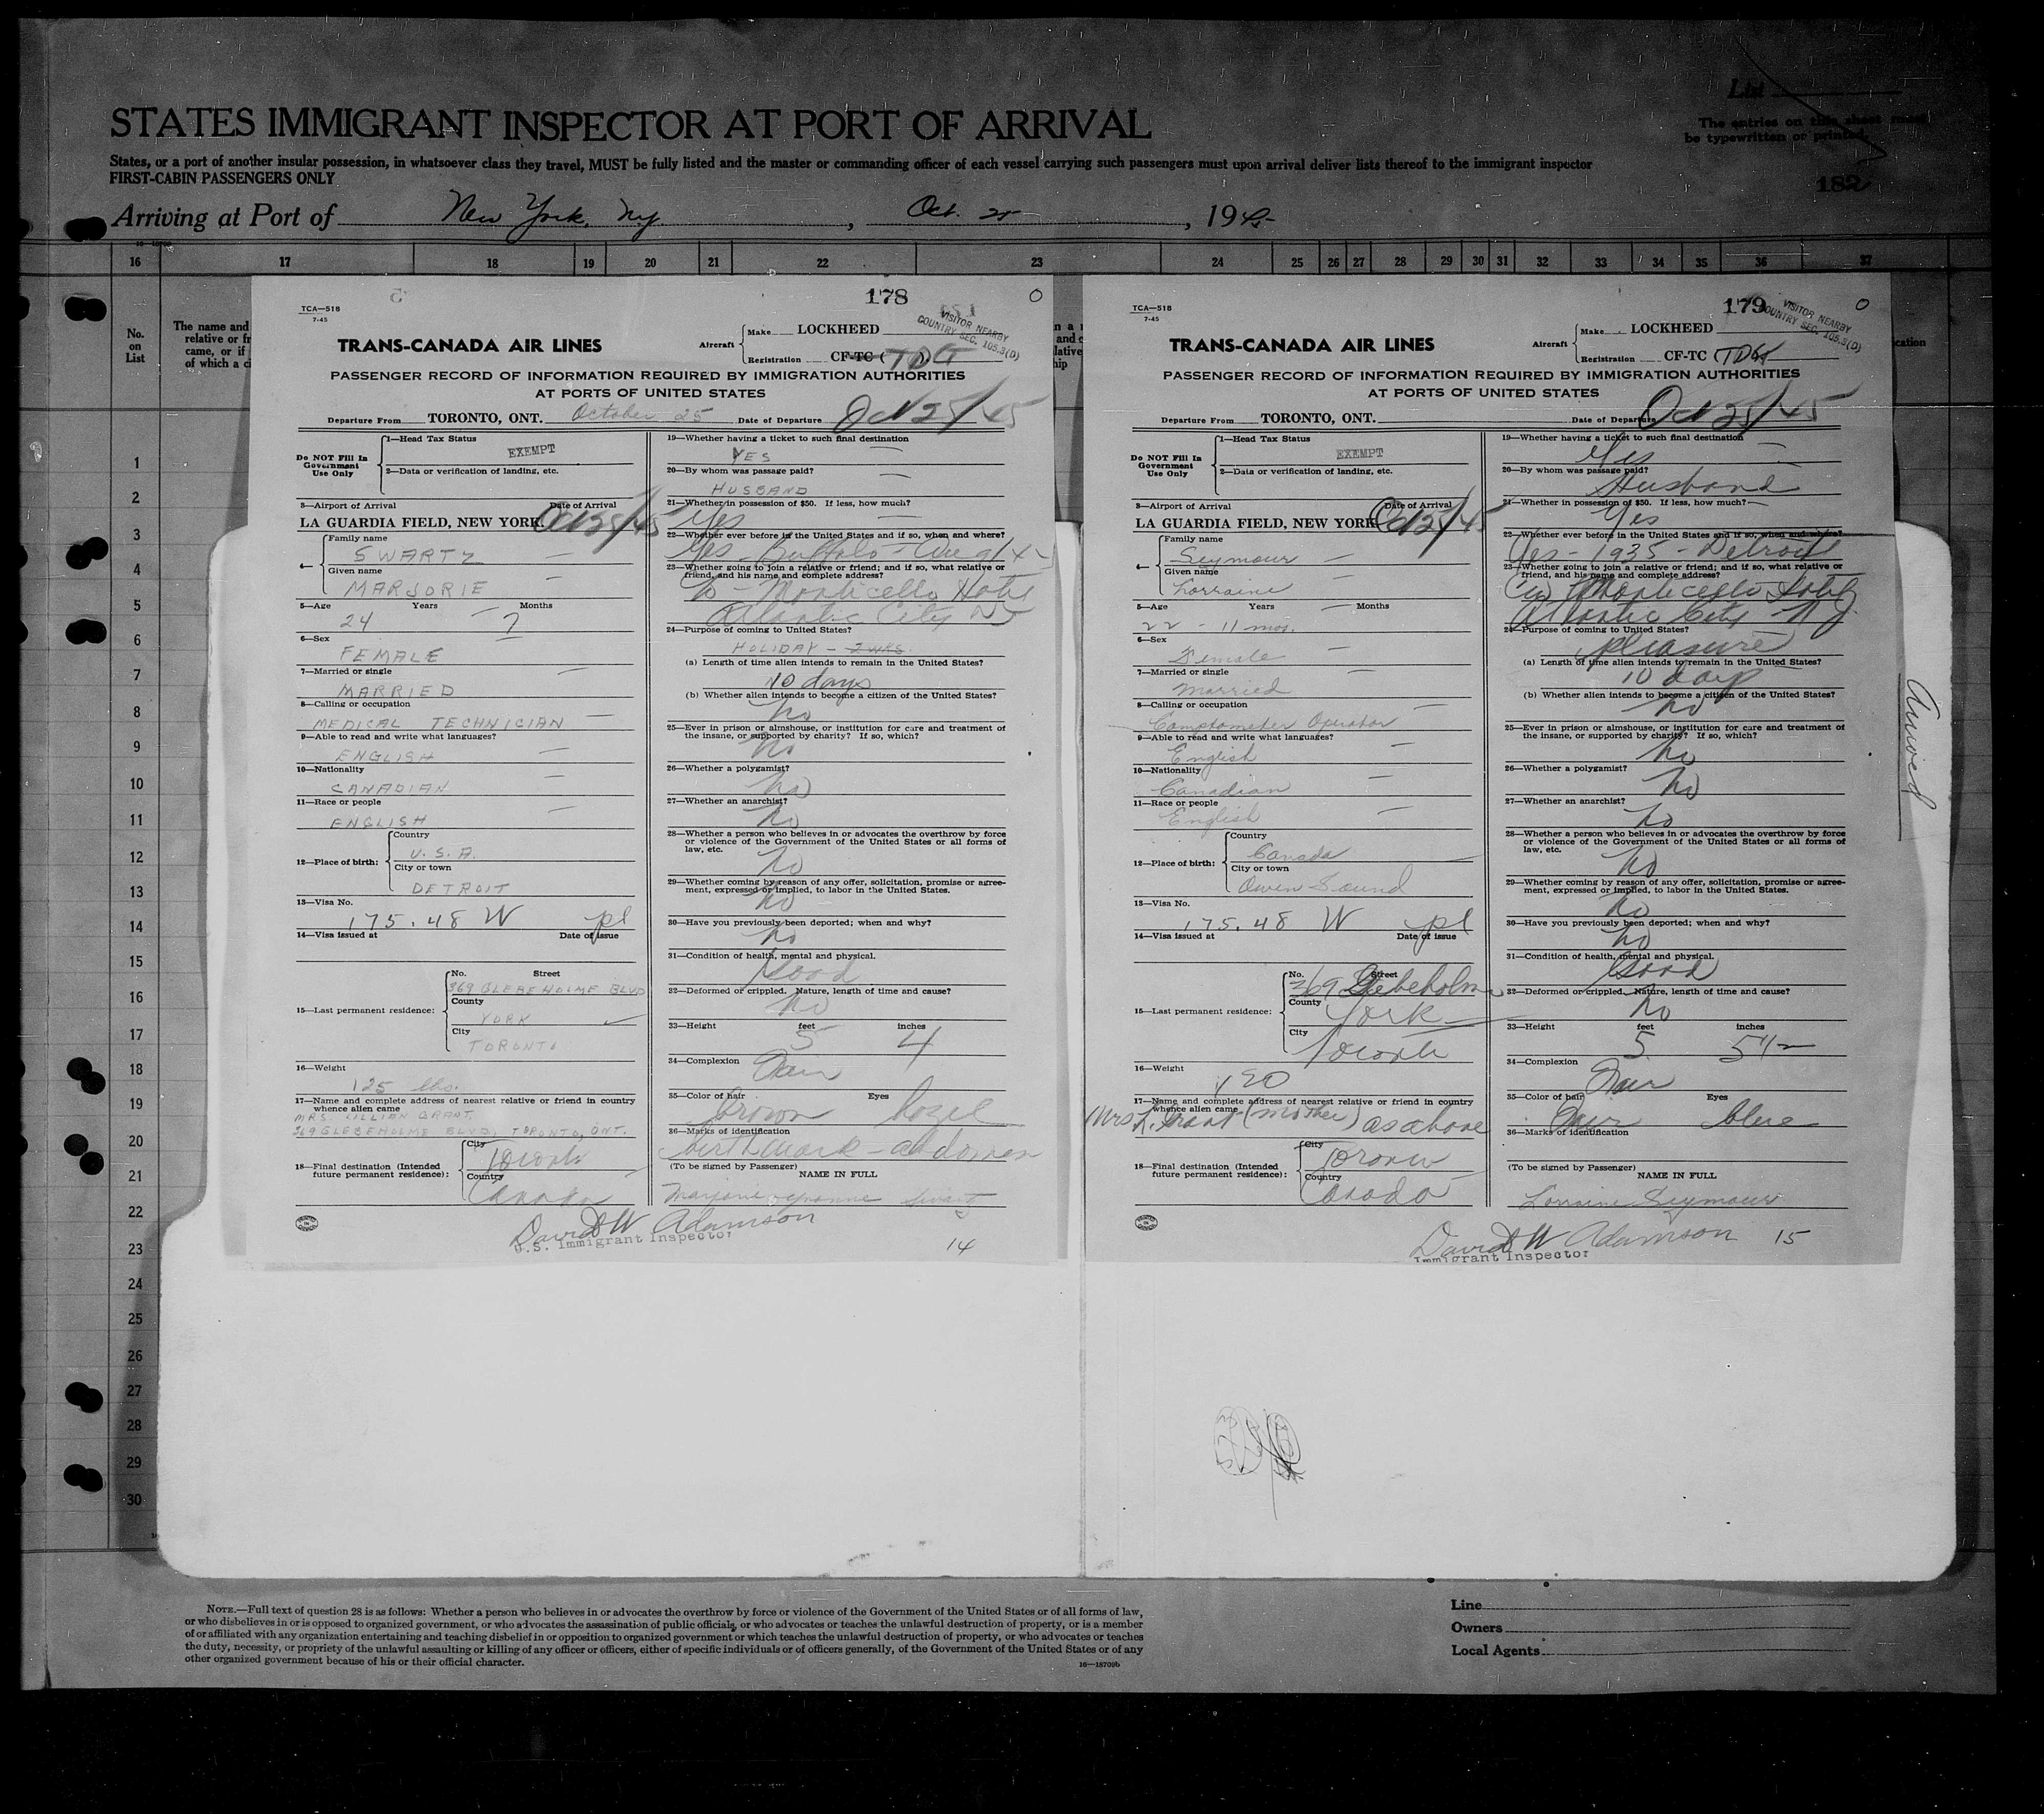 List
The entries on this sheet must
be typewritten or printed.
STATES IMMIGRANT INSPECTOR AT PORT OF ARRIVAL
States, or a port of another insular possession, in whatsoever class they travel, MUST be fully listed and the master or commanding officer of each vessel carrying such passengers must upon arrival deliver lists thereof to the immigrant inspector
FIRST-CABIN PASSENGERS ONLY
182
Arriving at Port of New York, NY, Oct. 25, 1945
16 17 18 19 20 21 22 23 24 25 26 27 28 29 30 31 32 33 34 35 36 37
No. on List
The name and
relative or fr
came, or if
of which a ci
1
2
3
4
5
6
7
8
9
10
11
12
13
14
15
16
17
18
19
20
21
22
23
24
25
26
27
28
29
30
178
TCA—518
7-45
VISITOR NEARBY
COUNTRY SEC. 105.3(D)
TRANS-CANADA AIR LINES
Aircraft Make LOCKHEED
Registration CF-TC (TDG)
PASSENGER RECORD OF INFORMATION REQUIRED BY IMMIGRATION AUTHORITIES
AT PORTS OF UNITED STATES
Departure From TORONTO, ONT. October 25 Date of Departure Oct 25/45
Do NOT Fill In Government Use Only
1—Head Tax Status
EXEMPT
2—Data or verification of landing, etc.
3—Airport of Arrival Date of Arrival
LA GUARDIA FIELD, NEW YORK. Oct 25/45
4— Family name
SWARTZ
Given name
MARJORIE
5—Age Years Months
24 7
6—Sex
FEMALE
7—Married or single
MARRIED
8—Calling or occupation
MEDICAL TECHNICIAN
9—Able to read and write what languages?
ENGLISH
10—Nationality
CANADIAN
11—Race or people
ENGLISH
12—Place of birth: Country
U.S.A.
City or town
DETROIT
13—Visa No.
175.48 W pl
14—Visa issued at Date of issue
15—Last permanent residence: No. Street
369 GLEBEHOLME BLVD
County
YORK
City
TORONTO
16—Weight
125 lbs.
17—Name and complete address of nearest relative or friend in country
whence alien came
MRS. LILLIAN GRANT,
369 GLEBEHOLME BLVD, TORONTO, ONT.
18—Final destination (Intended future permanent residence): City
Toronto
Country
Canada
19—Whether having a ticket to such final destination
YES
20—By whom was passage paid?
HUSBAND
21—Whether in possession of $50. If less, how much?
Yes
22—Whether ever before in the United States and if so, when and where?
Yes - Buffalo - Aug/45
23—Whether going to join a relative or friend; and if so, what relative or
friend, and his name and complete address?
no - Monticello Hotel
Atlantic City NJ
24—Purpose of coming to United States?
HOLIDAY - 2 WKS.
(a) Length of time alien intends to remain in the United States?
10 days
(b) Whether alien intends to become a citizen of the United States?
no
25—Ever in prison or almshouse, or institution for care and treatment of
the insane, or supported by charity? If so, which?
no
26—Whether a polygamist?
no
27—Whether an anarchist?
no
28—Whether a person who believes in or advocates the overthrow by force
or violence of the Government of the United States or all forms of
law, etc.
no
29—Whether coming by reason of any offer, solicitation, promise or agree-
ment, expressed or implied, to labor in the United States.
no
30—Have you previously been deported; when and why?
no
31—Condition of health, mental and physical.
Good
32—Deformed or crippled. Nature, length of time and cause?
no
33—Height feet inches
5 4
34—Complexion
Fair
35—Color of hair Eyes
brown hazel
36—Marks of identification
birthmark - abdomen
(To be signed by Passenger) NAME IN FULL
Marjorie Yvonne Swartz
David W Adamson
U.S. Immigrant Inspector
14
179
TCA—518
7-45
VISITOR NEARBY
COUNTRY SEC. 105.3(D)
TRANS-CANADA AIR LINES
Aircraft Make LOCKHEED
Registration CF-TC (TDG
PASSENGER RECORD OF INFORMATION REQUIRED BY IMMIGRATION AUTHORITIES
AT PORTS OF UNITED STATES
Departure From TORONTO, ONT. Date of Departure Oct 25/45
Do NOT Fill In Government Use Only
1—Head Tax Status
EXEMPT
2—Data or verification of landing, etc.
3—Airport of Arrival Date of Arrival
LA GUARDIA FIELD, NEW YORK Oct 25/45
4— Family name
Seymour
Given name
Lorraine
5—Age Years Months
22 - 11 mos.
6—Sex
Female
7—Married or single
Married
8—Calling or occupation
Comptometer Operator
9—Able to read and write what languages?
English
10—Nationality
Canadian
11—Race or people
English
12—Place of birth: Country
Canada
City or town
Owen Sound
13—Visa No.
175.48 W pl
14—Visa issued at Date of issue
15—Last permanent residence: No. Street
369 Glebeholm
County
York
City
Toronto
16—Weight
120
17—Name and complete address of nearest relative or friend in country
whence alien came
Mrs L. Grant (mother) as above
18—Final destination (Intended future permanent residence): City
Toronto
Country
Canada
19—Whether having a ticket to such final destination
Yes
20—By whom was passage paid?
Husband
21—Whether in possession of $50. If less, how much?
Yes
22—Whether ever before in the United States and if so, when and where?
Yes - 1935 - Detroit
23—Whether going to join a relative or friend; and if so, what relative or
friend, and his name and complete address?
Monticello Hotel
Atlantic City NJ
24—Purpose of coming to United States?
pleasure
(a) Length of time alien intends to remain in the United States?
10 days
(b) Whether alien intends to become a citizen of the United States?
no
25—Ever in prison or almshouse, or institution for care and treatment of
the insane, or supported by charity? If so, which?
no
26—Whether a polygamist?
no
27—Whether an anarchist?
no
28—Whether a person who believes in or advocates the overthrow by force
or violence of the Government of the United States or all forms of
law, etc.
no
29—Whether coming by reason of any offer, solicitation, promise or agree-
ment, expressed or implied, to labor in the United States.
no
30—Have you previously been deported; when and why?
no
31—Condition of health, mental and physical.
Good
32—Deformed or crippled. Nature, length of time and cause?
no
33—Height feet inches
5 5 1/2
34—Complexion
Fair
35—Color of hair Eyes
Fair blue
36—Marks of identification
(To be signed by Passenger) NAME IN FULL
Lorraine Seymour
David W Adamson
Immigrant Inspector
15
NOTE.—Full text of question 28 is as follows: Whether a person who believes in or advocates the overthrow by force or violence of the Government of the United States or of all forms of law,
or who disbelieves in or is opposed to organized government, or who advocates the assassination of public officials, or who advocates or teaches the unlawful destruction of property, or is a member
of or affiliated with any organization entertaining and teaching disbelief in or opposition to organized government or which teaches the unlawful destruction of property, or who advocates or teaches
the duty, necessity, or propriety of the unlawful assaulting or killing of any officer or officers, either of specific individuals or of officers generally, of the Government of the United States or of any
other organized government because of his or their official character.
16—18709b
Line
Owners
Local Agents